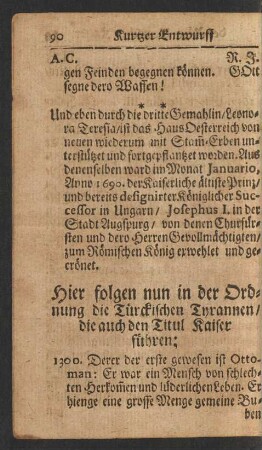 90 Kurtzer Entwurff
A.C. R. J.
gen Feinden begegnen können. GOtt
segne dero Waffen!
* * *
Und eben durch die dritte Gemahlin/ Leono-
ra Teresia/ ist das Haus Oesterreich von
neuen wiederum mit Stam̃-Erben un-
terstützet und fortgepflantzet worden. Aus
denenselben ward im Monat Januario,
Anno 1690. der Kaiserliche älteste Prinz/
und bereits designirter Königlicher Suc-
cessor in Ungarn/ Josephus I. in der
Stadt Augspurg/ von denen Churfür-
sten und dero Herren Gevollmächtigten/
zum Römischen König erwehlet und ge-
crönet.
Hier folgen nun in der Ord-
nung die Türckischen Tyrannen/
die auch den Titul Kaiser
führen:
1300. Derer der erste gewesen ist Otto-
man: Er war ein Mensch von schlech-
ten Herkom̃en und lüderlichen Leben. Er
hienge eine grosse Menge gemeine Bu-
ben